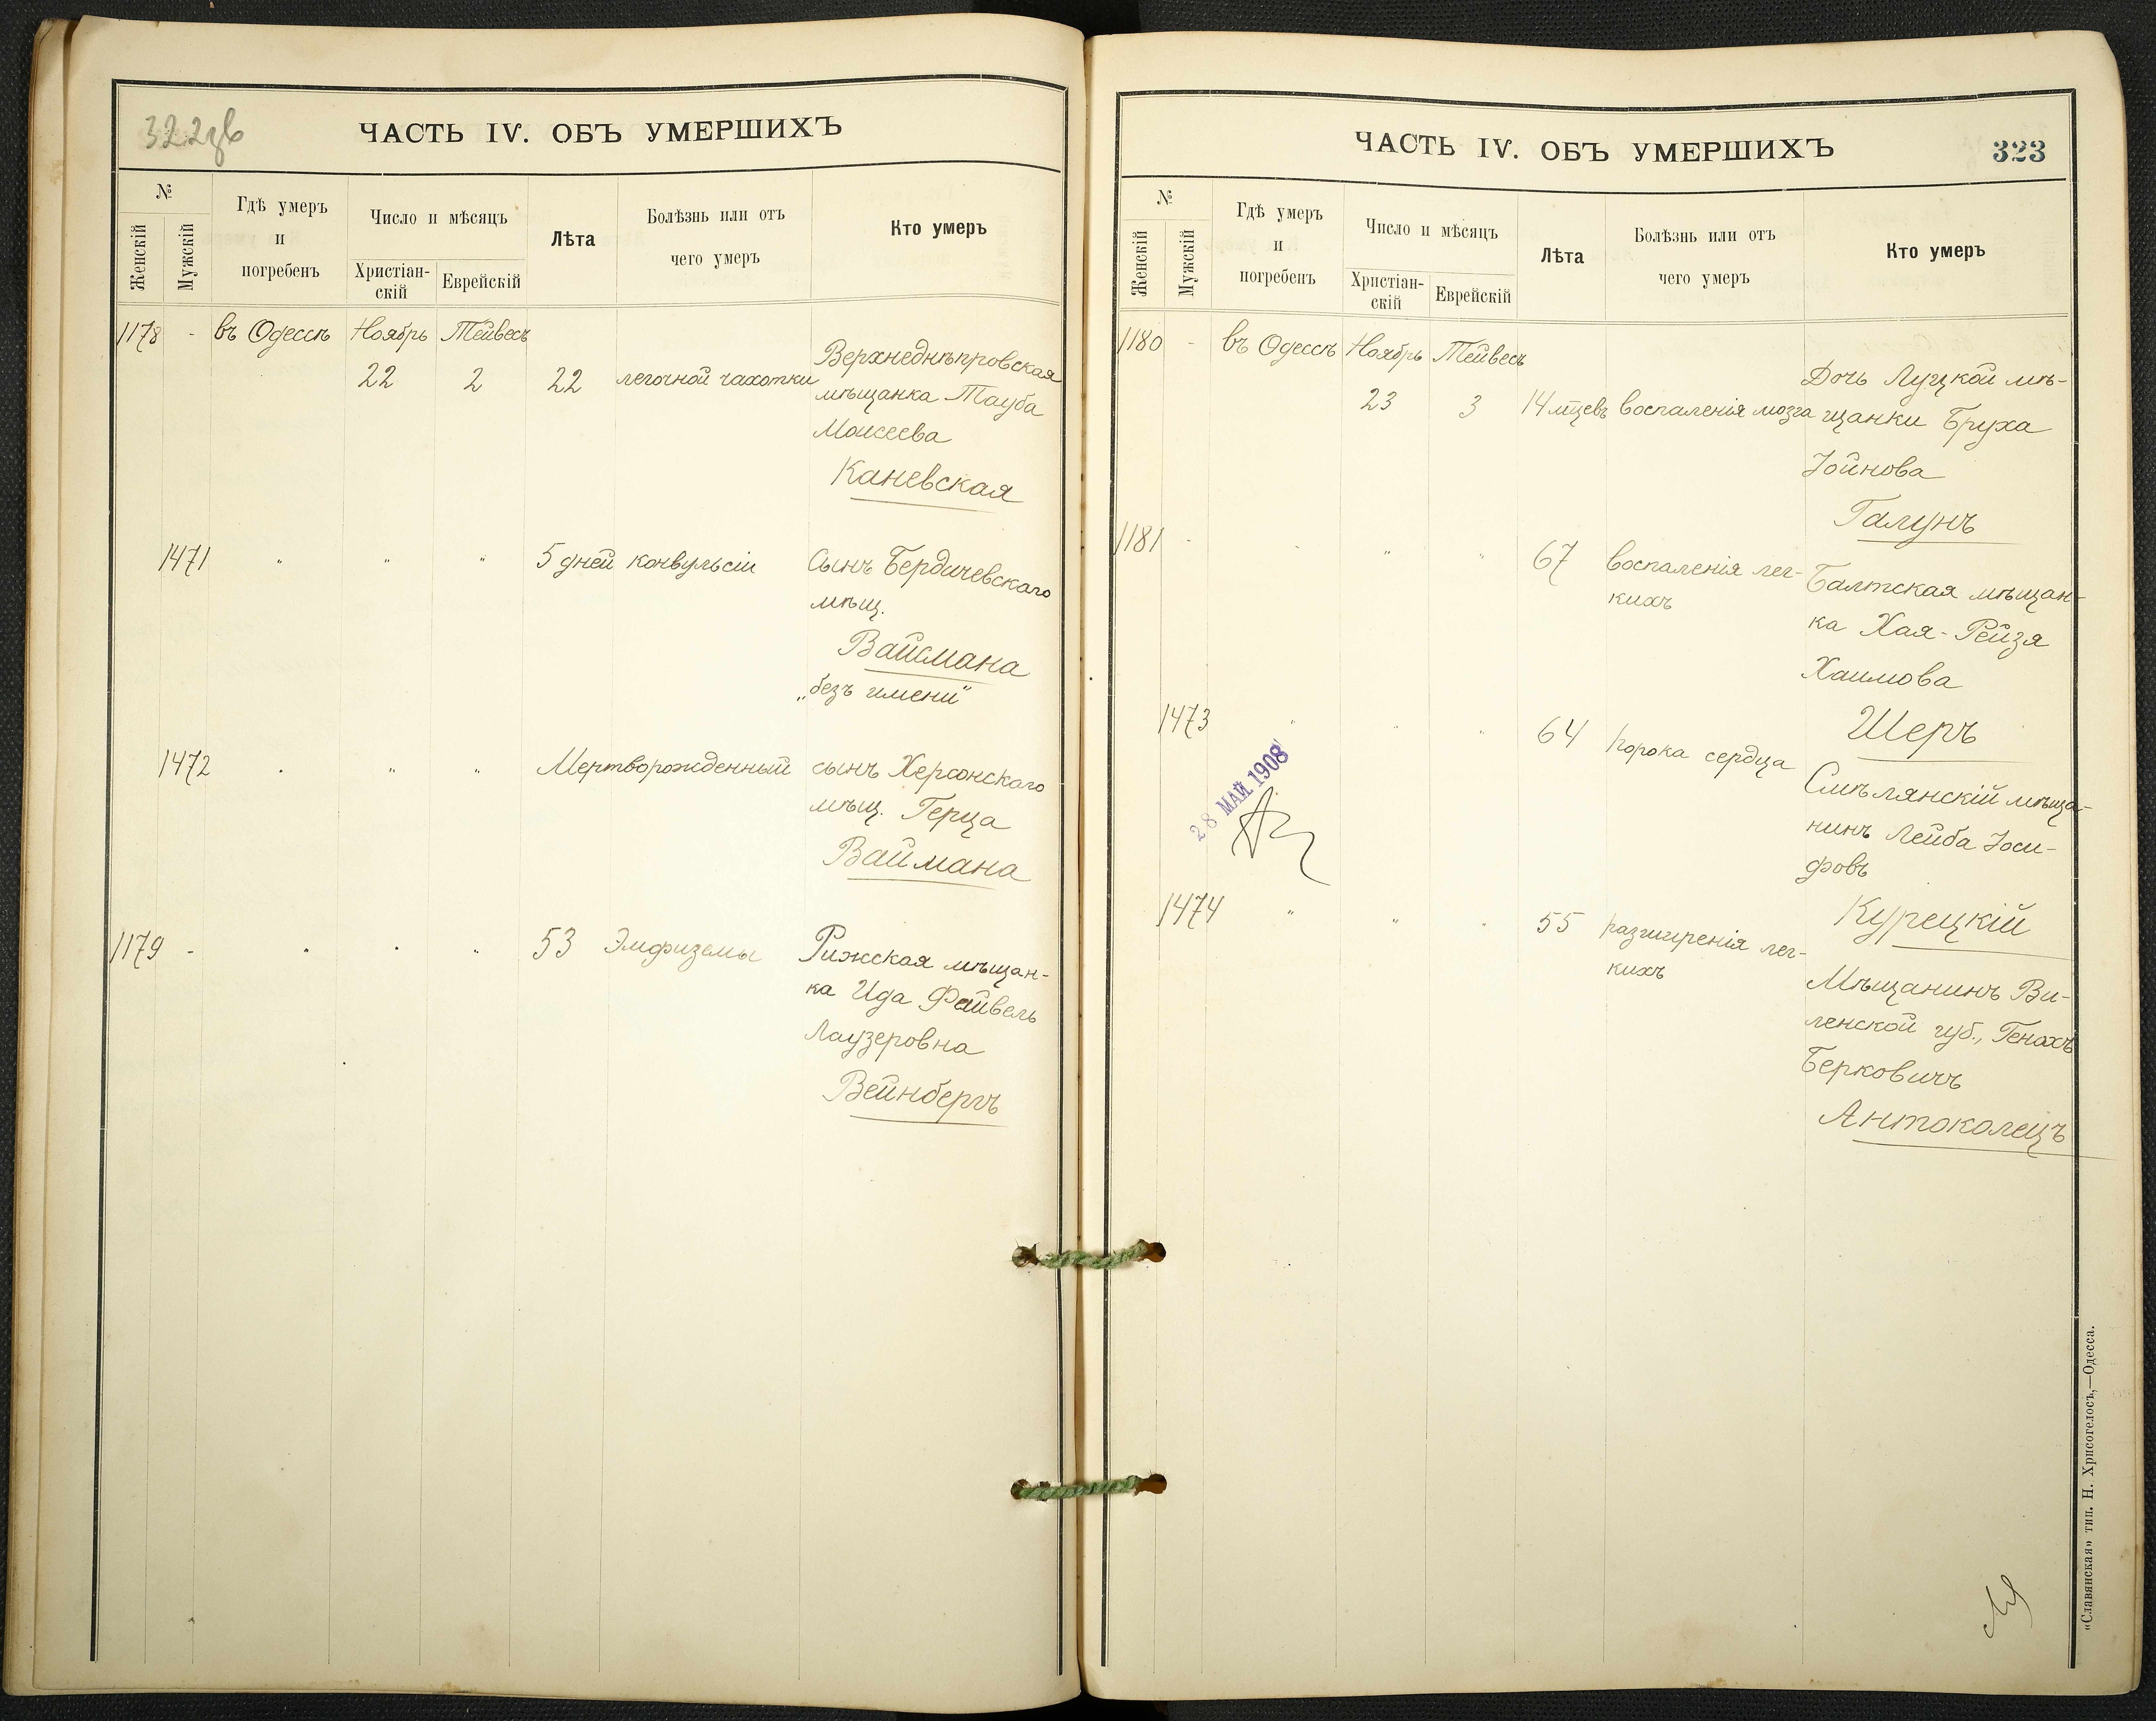 322 об
ЧАСТЬ IV. ОБЪ УМЕРШИХЪ
№
Женскій
Мужскій
Гдѣ умеръ
и
погребенъ
Число и мѣсяцъ
Христіан-
скій
Еврейскій
Лѣта
Болѣзнь или отъ
чего умеръ
Кто умеръ
1178 - въ Одессѣ Ноябрь Тейвесъ
22 2 22 легочной чахотки Верхнеднѣпровская
мѣщанка Тауба
Моисеева
Каневская
1471 " " " 5 дней конвульсіи Сынъ Бердичевскаго
мѣщ.
Вайсмана
„безъ имени"
1472 " " " Мертворожденный сынъ Херсонскаго
мѣщ. Герца
Ваймана
1179 - " " " 53 Эмфиземы Рижская мѣщан-
ка Ида Файвель
Лаузеровна
Вейнбергъ
ЧАСТЬ IV. ОБЪ УМЕРШИХЪ
323
№
Женскій
Мужскій
Гдѣ умеръ
и
погребенъ
Число и мѣсяцъ
Христіан-
скій
Еврейскій
Лѣта
Болѣзнь или отъ
чего умеръ
Кто умеръ
1180 - въ Одессѣ Ноябрь Тейвесъ
23 3 14 мцевъ воспаленія мозга Дочь Луцкой мѣ-
щанки Бруха
Іойнова
Галунъ
1181 - " " " 67 воспаленія лег-
кихъ
Балтская мѣщан-
ка Хая-Рейзя
Хаимова
Шеръ
1473 " " " 64 порока сердца
Смѣлянскій мѣща-
нинъ Лейба Іоси-
фовъ
Курецкій
28 МАЙ 1908
1474 " " " 55 разширенія лег-
кихъ
Мѣщанинъ Ви-
ленской губ., Генахъ
Берковичъ
Антоколецъ
«Славянская» тип. Н. Хрисогелосъ,—Одесса.